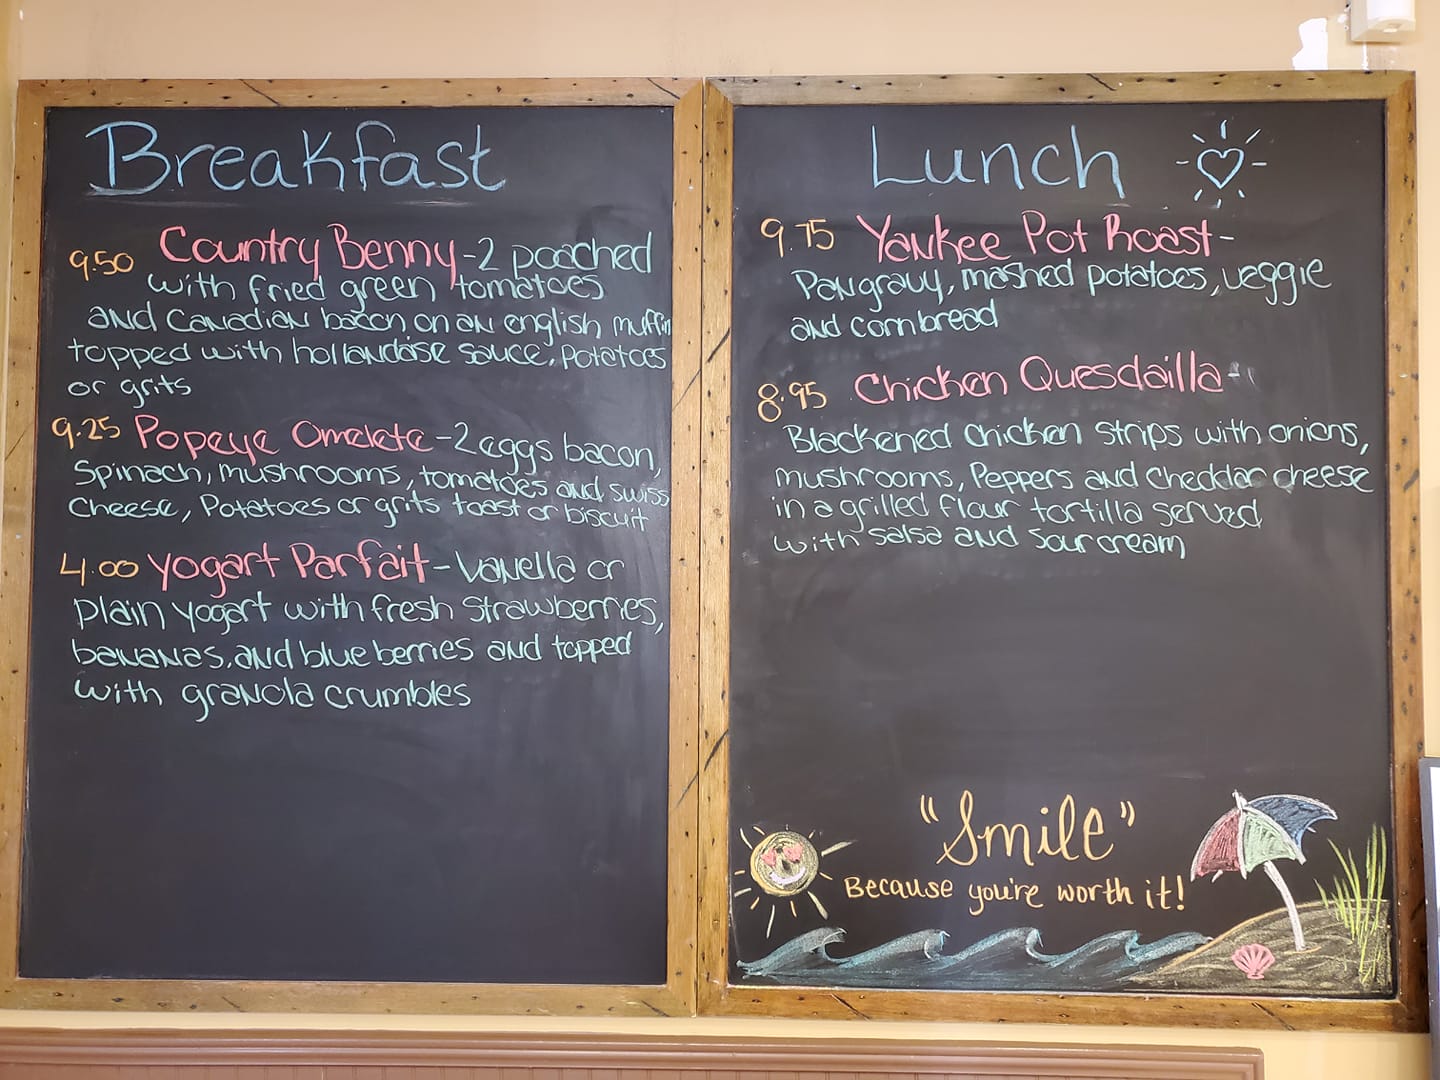 Breakfast
9.50 Country Benny - 2 poached
with fried green tomatoes
and Canadian bacon on an english muffin
topped with hollandaise sauce, potatoes
or grits
9.25 Popeye Omelete - 2 eggs bacon,
Spinach, mushrooms, tomatoes and swiss
cheese, Potatoes or grits toast or biscuit
4.00 Yogart Parfait - Vanella or
plain yogart with fresh strawberries,
bananas, and blueberries and topped
with granola crumbles
Lunch
9.75 Yankee Pot Roast -
Pan gravy, mashed potatoes, veggie
and cornbread
8.95 Chicken Quesdailla -
Blackened chicken strips with onions,
mushrooms, Peppers and Cheddar cheese
in a grilled flour tortilla served
with salsa and sour cream
"Smile"
Because you're worth it!